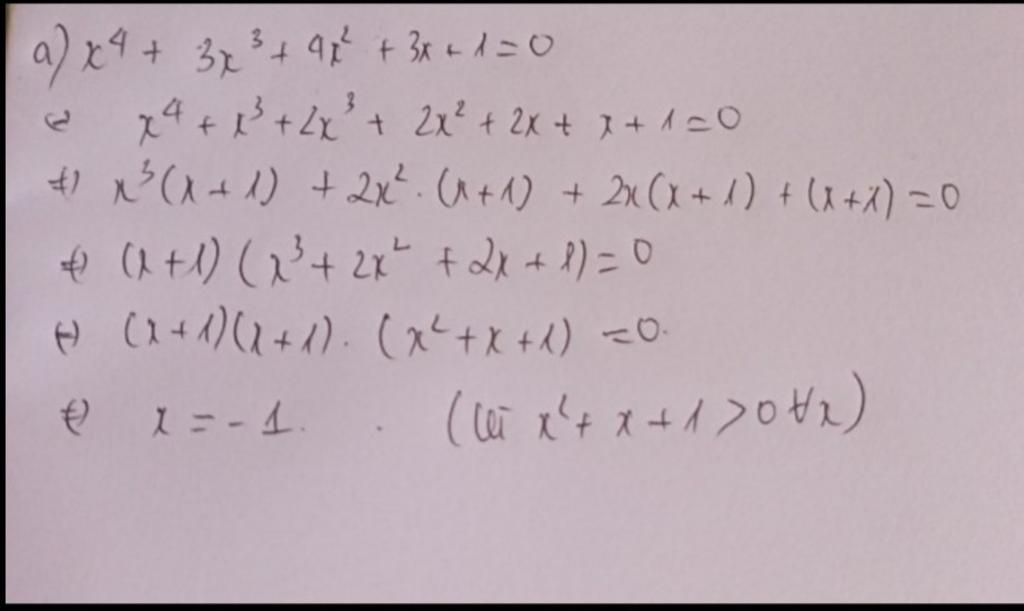 a) x⁴ + 3x³ + 4x² + 3x + 1 = 0
⇔ x⁴ + x³ + 2x³ + 2x² + 2x + x + 1 = 0
⇔ x³(x + 1) + 2x². (x + 1) + 2x(x + 1) + (x + 1) = 0
⇔ (x + 1) (x³ + 2x² + 2x + 1) = 0
⇔ (x + 1)(x + 1). (x² + x + 1) = 0.
⇔ x = - 1. . ( x² + x + 1 > 0 ∀x)